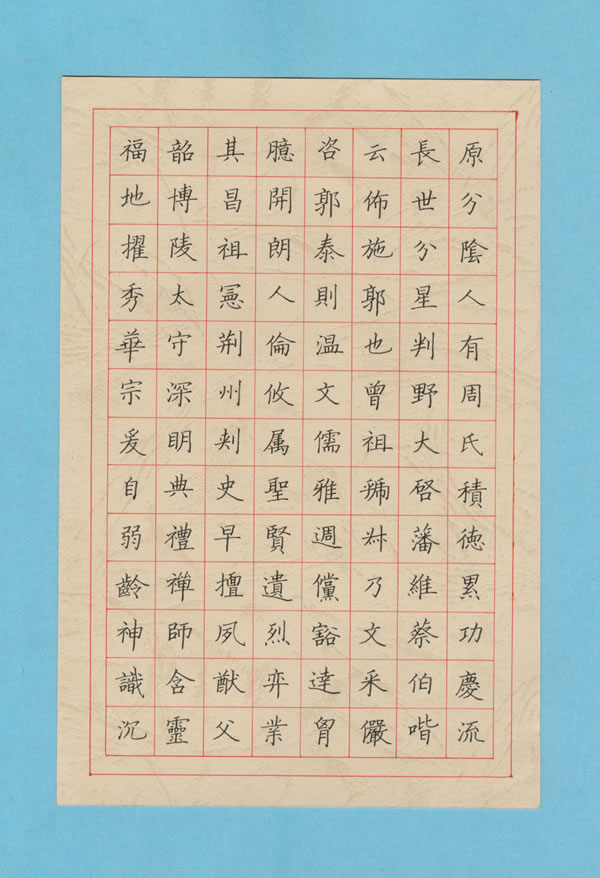 原分陰人有周氏積徳累功慶流
長世分星判野大啓藩維蔡伯喈
云佈施郭也曾祖虢叔乃文采儼
咨郭泰則温文儒雅週儻豁達胷
臆開朗人倫攸属聖賢遺烈弈業
其昌祖憲荆州刾史早擅夙猷父
韶博陵太守深眀典禮禪師含靈
福地擢秀華宗爰自弱齡神識沉